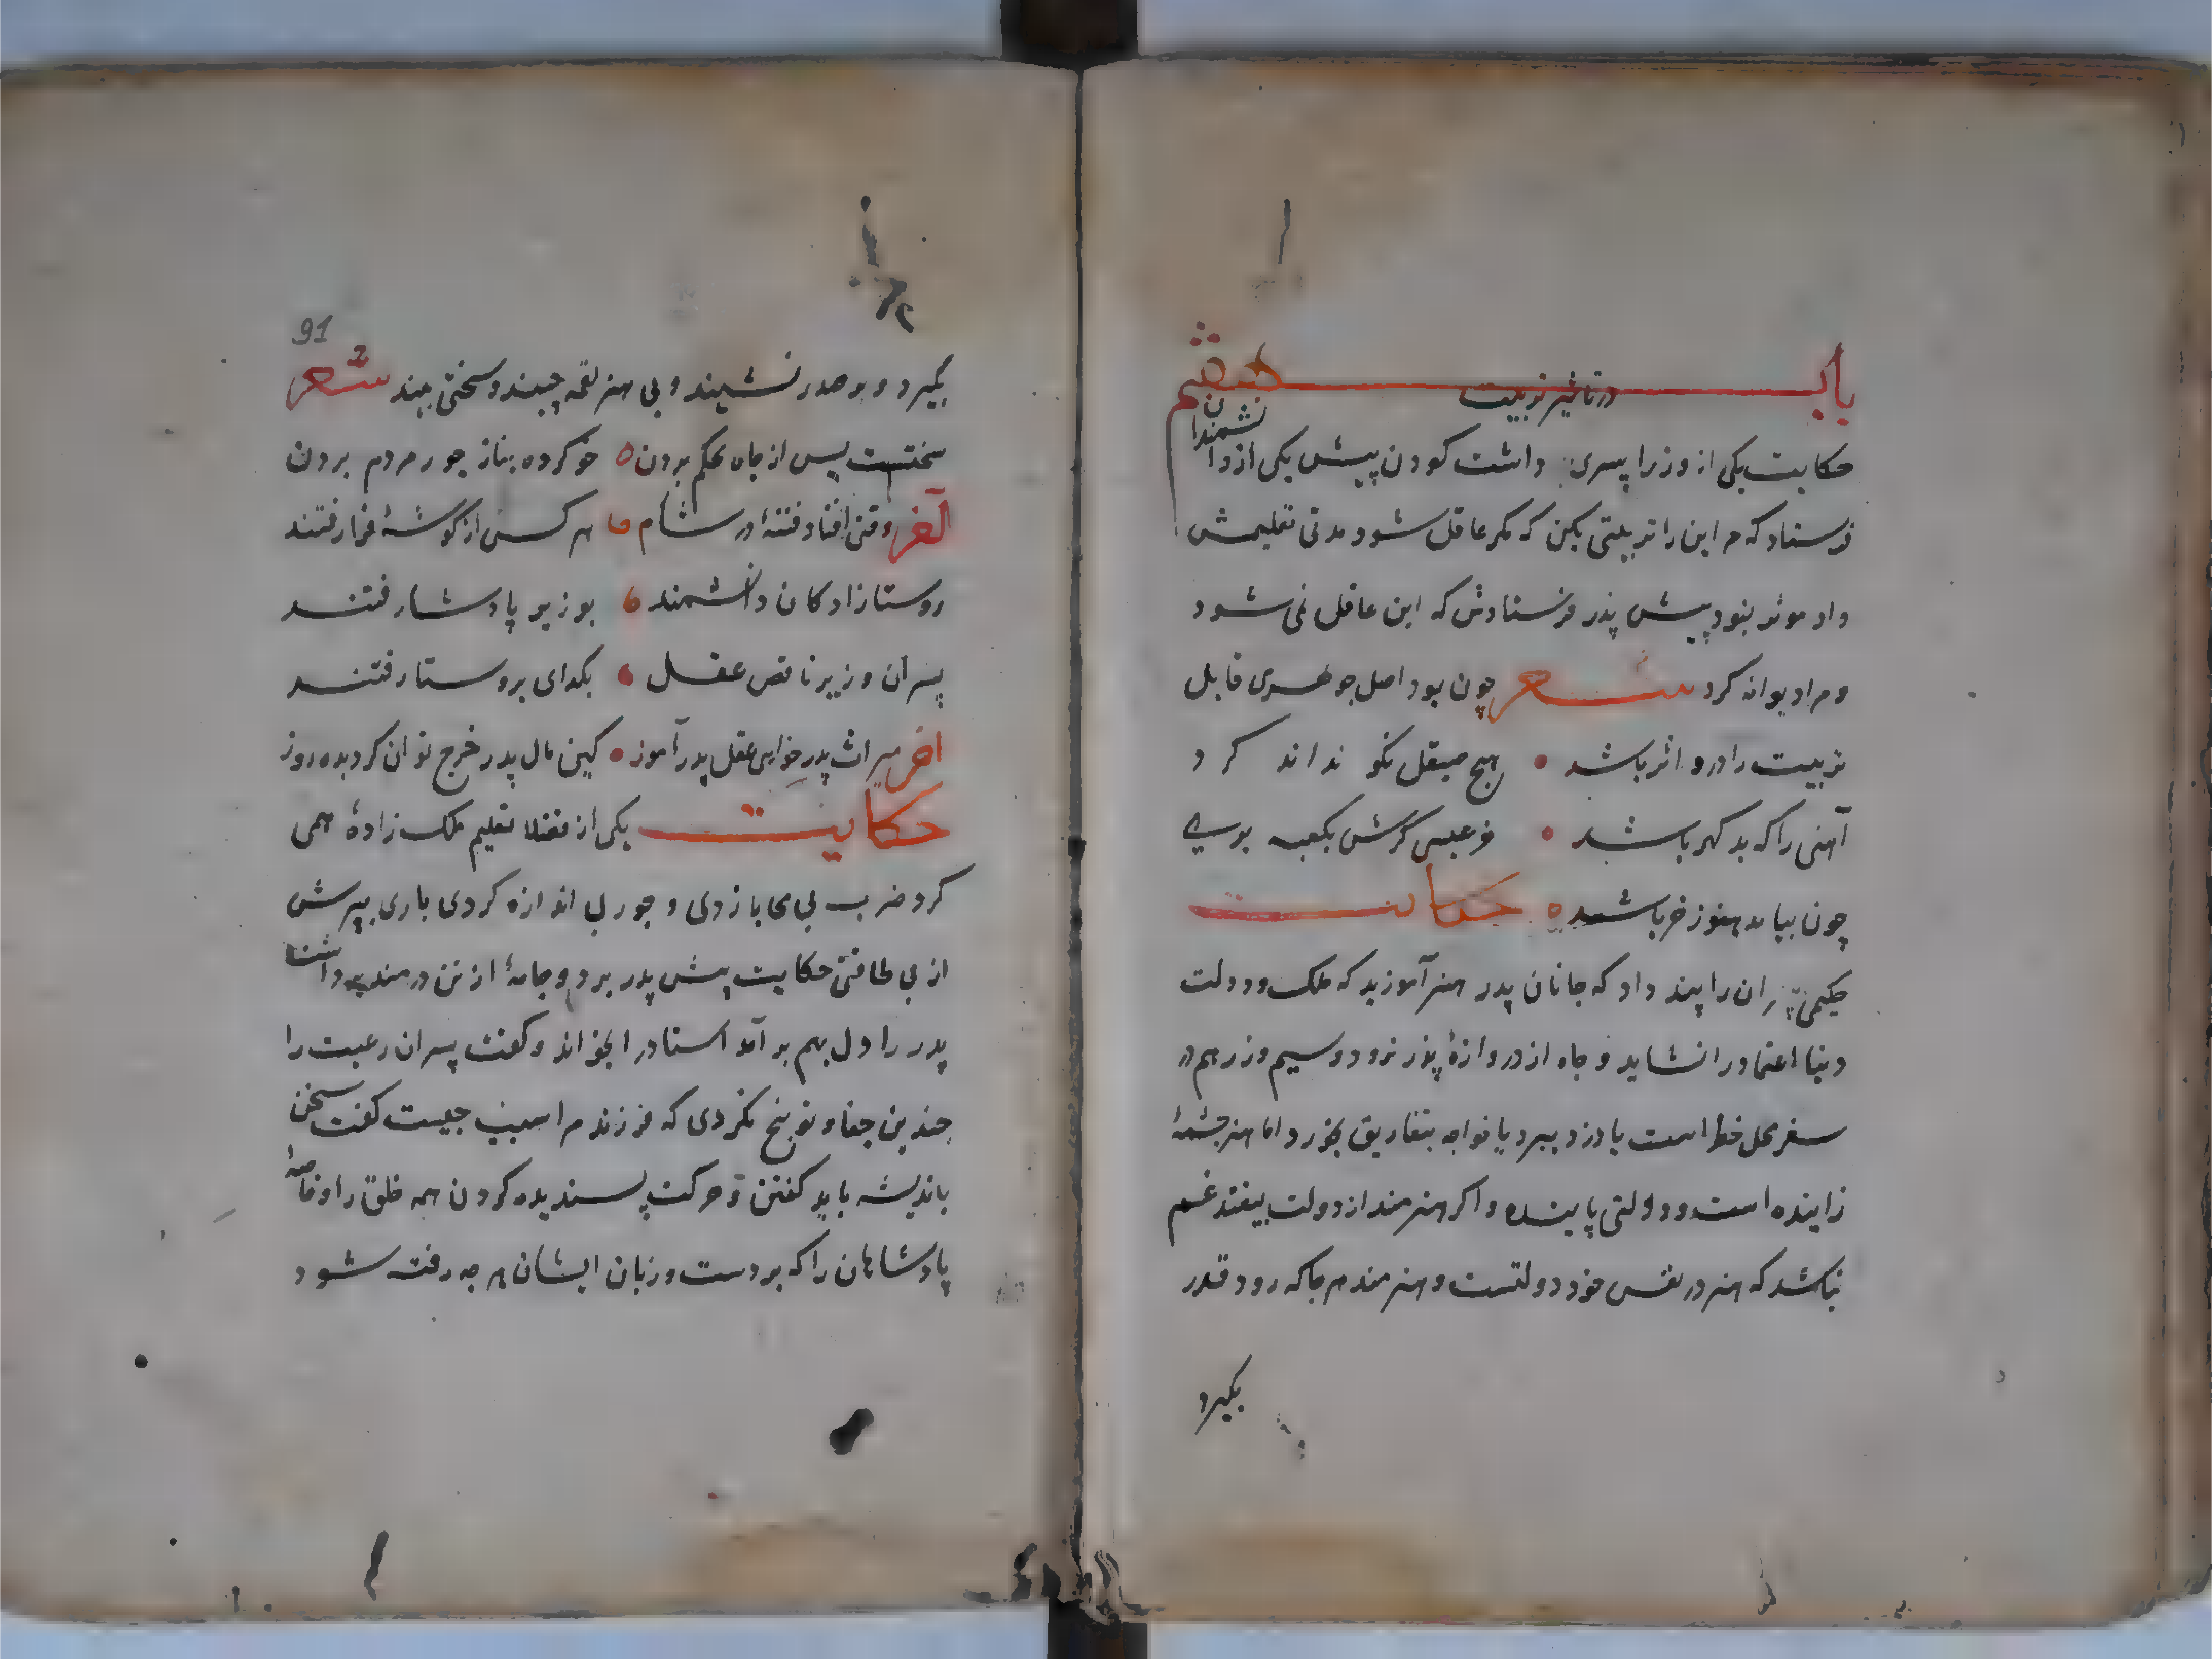 باب در تاثیر تربیت هفتم
حکایت یکی از وزرا پسری داشت کودن پیش یکی از دانشمندان
فرستاد که مر این را تربیتی بکن که مکر عاقل شود مدتی تعلیمش
داد موثر نبود پیش پذر فرستادش که این عاقل نمی شود
و مرا دیوانه کرد شعر چون بود اصل جوهری قابل
تربیت را درو اثر باشد هیچ صیقل نکو نداند کرد
آهنی را که بد کهر باشد خر عیسی کرش بکعبه بری
چون بیاید هنوز خر باشد حکایت
حکیمی پسران را پند داد که جانان پدر هنر آموزید که ملک و دولت
دنیا اعتماد را نشاید و جاه از دروازهٔ بذر نرود و سیم و زر هم در
سفر محل خطر است یا دزد ببرد یا خواجه بتفاریق بخورد اما هنر چشمهٔ
زاینده است و دولتی پاینده و اکر هنرمند از دولت بیفتد غم
نباشد که هنر در نفس خود دولتست و هنرمند هر جا که رود قدر
بکیرد
91
بکیرد و بر صدر نشیند و بی هنر لقمه چیند و سختی بیند شعر
سختست پس از جاه تحکم بردن خو کرده بناز جور مردم بردن
آخر وقتی افتاد فتنهٔ در شام هر کس از کوشهٔ فرا رفتند
روستازادکان دانشمند بوزیر پادشا رفتند
پسران وزیر ناقص عقل بکدای بروستا رفتند
اخر میراث پدر خواهی عقل پدر آموز کین مال پدر خرج توان کرد بده روز
حکایت یکی از فضلا تعلیم ملک زادهٔ همی
کرد ضرب بی محابا زدی و جور بی اندازه کردی باری پسرش
از بی طاقتی حکایت پیش پدر برد و جامهٔ از تن دردمند برداشت
پدر را دل بهم بر آمد استاد را بخواند و کفت پسران رعیت را
چندین جفا و توبیخ نکردی که فرزند مرا سبب چیست کفت سخن
باندیشه باید کفتن و حرکت پسندیده کردن همه خلق را و خاصهٔ
پادشاهان را که بر دست و زبان ایشان هر چه رفته شود